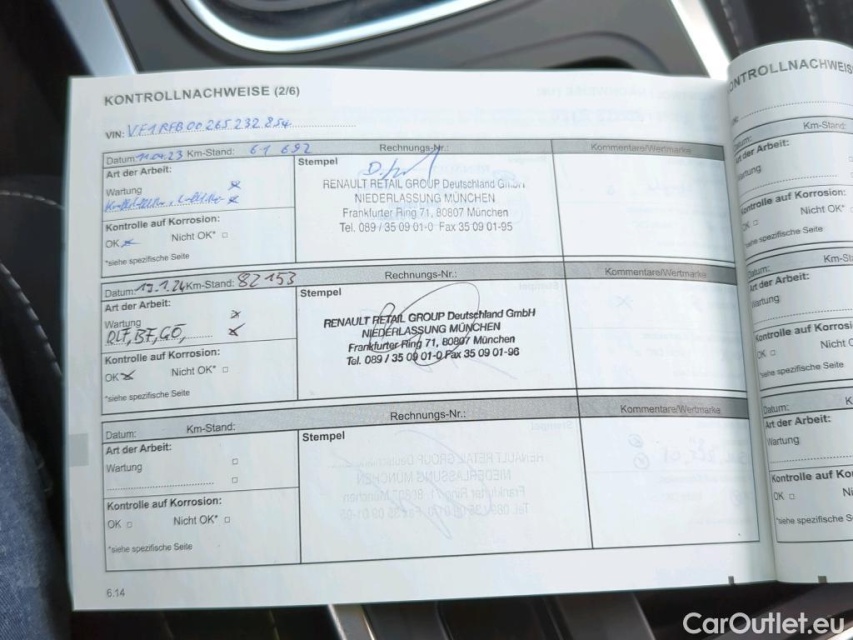 KONTROLLNACHWEISE (2/6)
VIN: VF1RFB00265232854
Datum: 11.04.23 Km-Stand: 61 692 Rechnungs-Nr.: Kommentare/Wertmarke
Art der Arbeit:
Wartung
Kontrolle auf Korrosion:
OK Nicht OK*
*siehe spezifische Seite
Stempel
RENAULT RETAIL GROUP Deutschland GmbH
NIEDERLASSUNG MÜNCHEN
Frankfurter Ring 71, 80807 München
Tel. 089 / 35 09 01-0 Fax 35 09 01-95
Datum: 19.1.24 Km-Stand: 82 153 Rechnungs-Nr.: Kommentare/Wertmarke
Art der Arbeit:
Wartung
Kontrolle auf Korrosion:
OK Nicht OK*
*siehe spezifische Seite
Stempel
RENAULT RETAIL GROUP Deutschland GmbH
NIEDERLASSUNG MÜNCHEN
Frankfurter Ring 71, 80807 München
Tel. 089 / 35 09 01-0 Fax 35 09 01-96
Datum: Km-Stand: Rechnungs-Nr.: Kommentare/Wertmarke
Art der Arbeit:
Wartung
Kontrolle auf Korrosion:
OK Nicht OK*
*siehe spezifische Seite
Stempel
6.14
ONTROLLNACHWEISE
Km-Stand:
Art der Arbeit:
Wartung
Kontrolle auf Korrosion:
OK Nicht OK*
*siehe spezifische Seite
Datum: Km-St
Art der Arbeit:
Wartung
Kontrolle auf Korrosi
OK Nicht O
*siehe spezifische Seite
Datum: Km-S
Art der Arbeit:
Wartung
Kontrolle auf Ko
OK Nicht
*siehe spezifische S
CarOutlet.eu